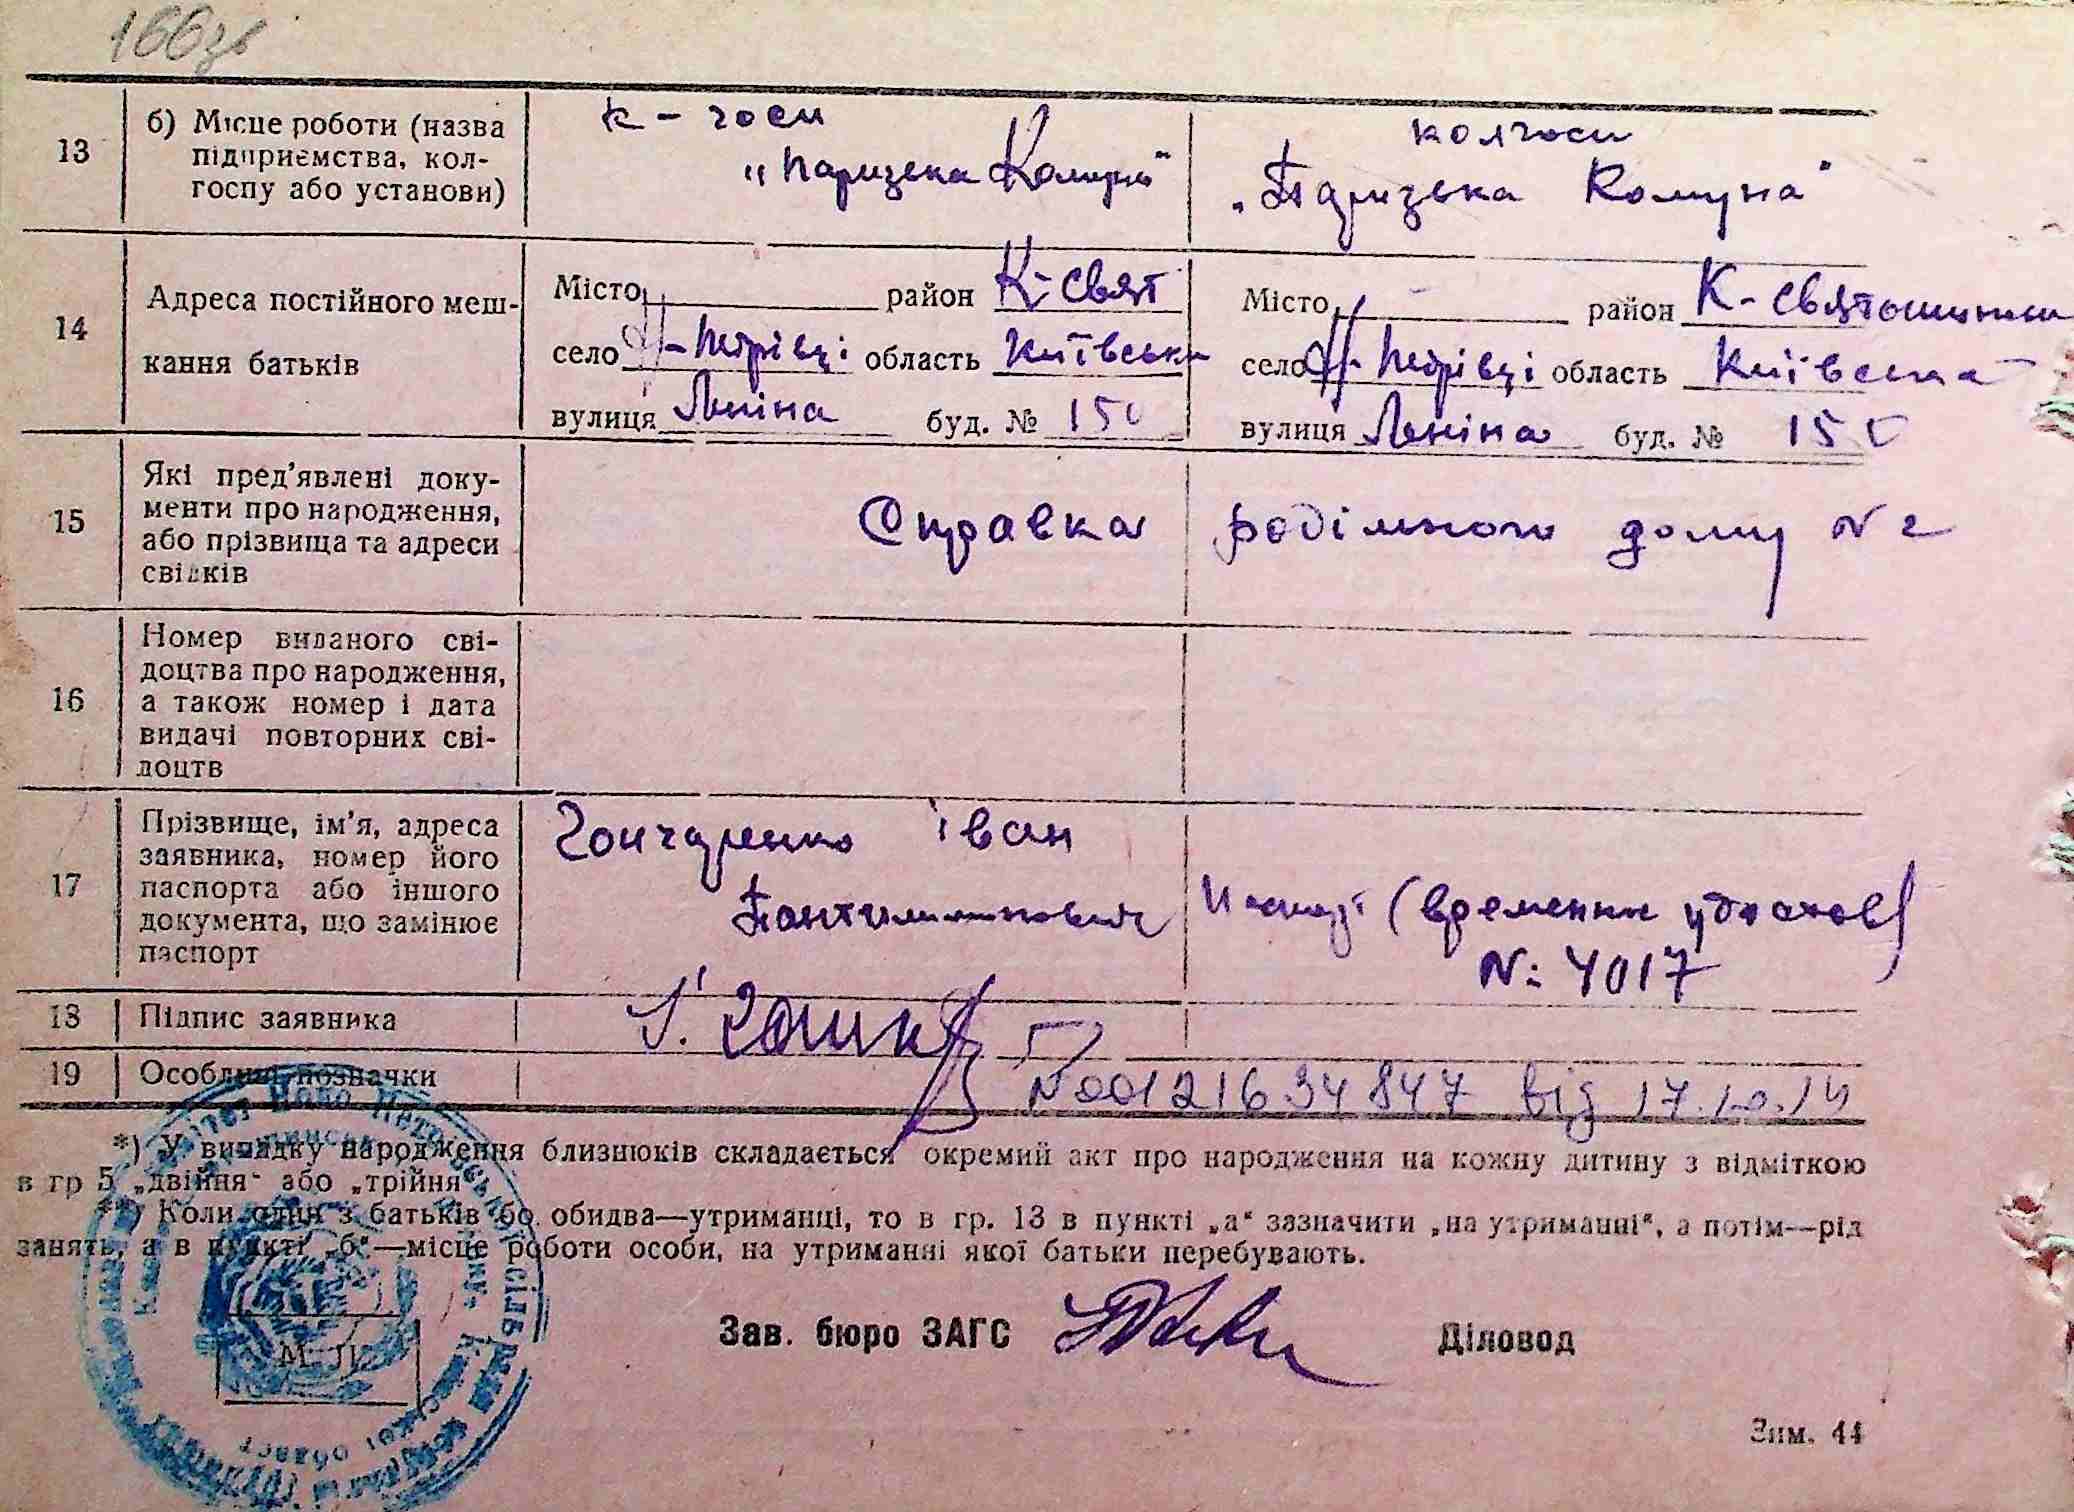 166зв
13 б) Місце роботи (назва підприємства, колгоспу або установи)
к-госп
„Паризька Комуна"
колгосп
„Паризька Комуна"
14 Адреса постійного мешкання батьків
Місто район К-Свят
село Н-Петрівці область Київська
вулиця Леніна буд. № 150
Місто район К-Святошинськ
село Н-Петрівці область Київська
вулиця Леніна буд. № 150
15 Які пред'явлені документи про народження, або прізвища та адреси свідків
Справка родільного дому № 2
16 Номер виданого свідоцтва про народження, а також номер і дата видачі повторних свідоцтв
17 Прізвище, ім'я, адреса заявника, номер його паспорта або іншого документа, що замінює паспорт
Гончаренко Іван
Пантилимонович
Паспорт (временни удостов)
№ 4017
18 Підпис заявника
19 Особливі позначки
№00121634847 від 17.10.14
*) У випадку народження близнюків складається окремий акт про народження на кожну дитину з відміткою
в гр 5 „двійня" або „трійня"
**) Коли один з батьків бо обидва—утриманці, то в гр. 13 в пункті „а" зазначити „на утриманні", а потім—рід
занять, а в пункті „б"—місце роботи особи, на утриманні якої батьки перебувають.
Зав. бюро ЗАГС
Діловод
М. П.
Зим. 44